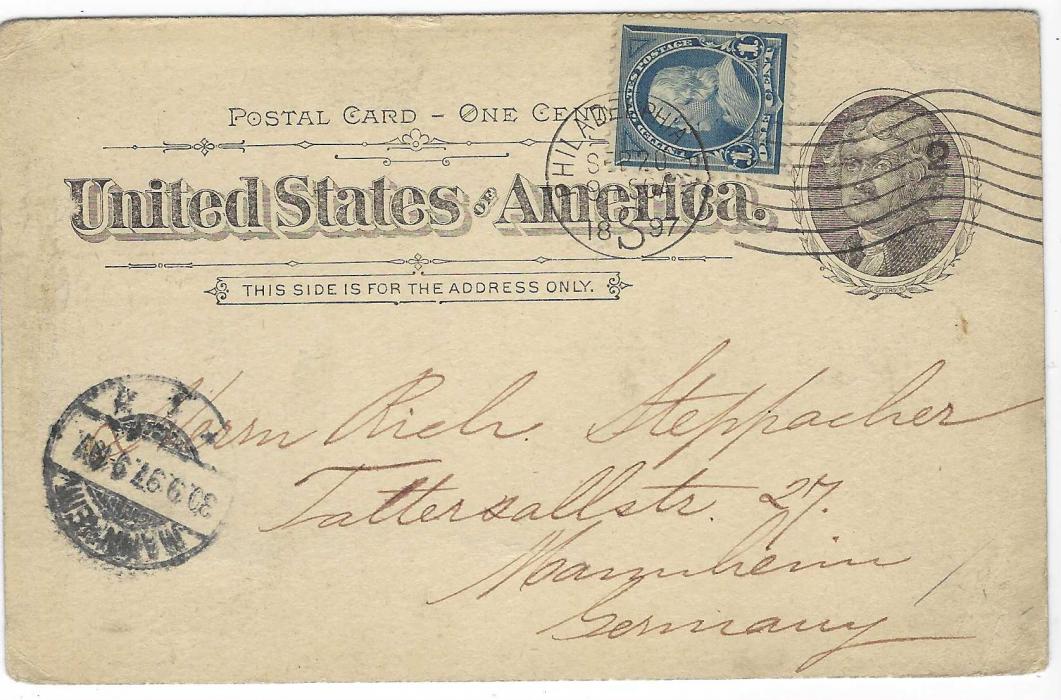 POSTAL CARD – ONE CEN
United States of America.
THIS SIDE IS FOR THE ADDRESS ONLY.
UNITED STATES POSTAGE
1 1
PHILADELPHIA
1897
2
JEFFERSON
30.9.97.9-10V.
MANNHEIM
Herrn Rich. Steppacher
Tattersallstr. 27.
Mannheim
Germany